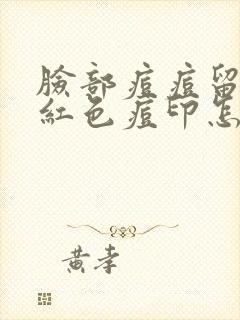 臉部痘痘留
紅色痘印怎
黃孝